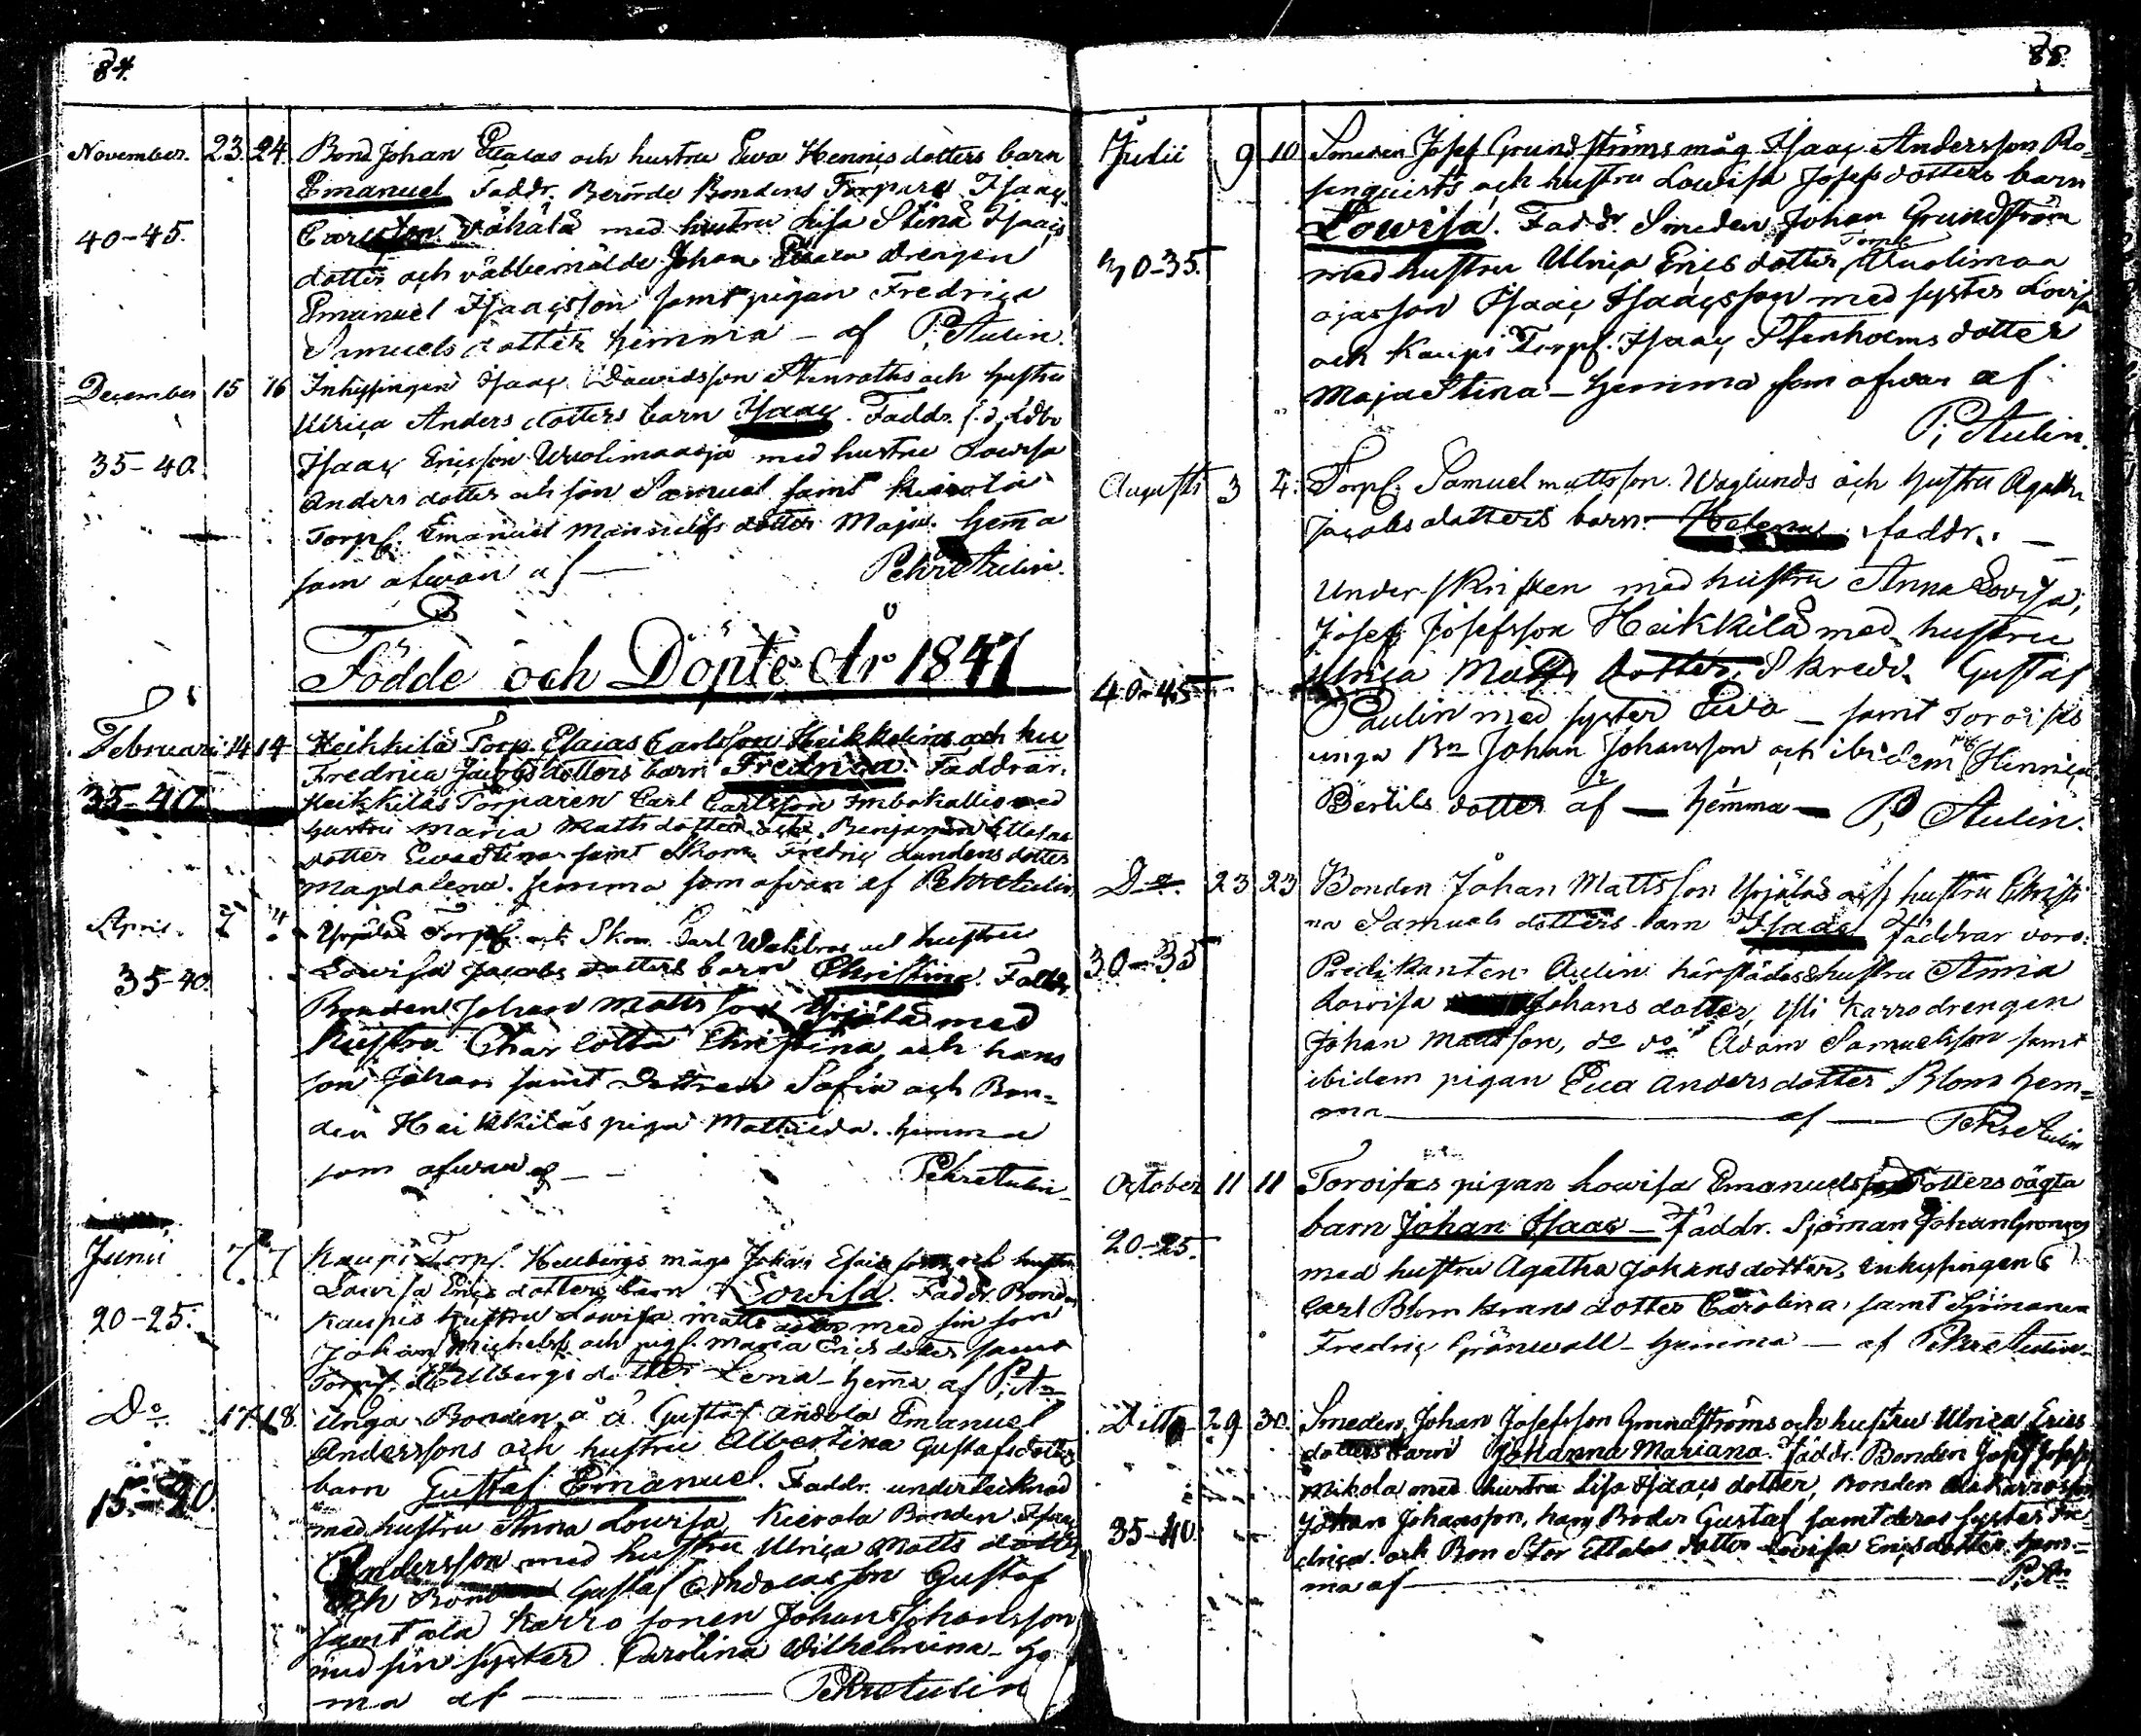 84.
November. 23. 24. Bond Johan och hustru Ewa Hennis dotters barn
Emanuel Faddr. Berörde Bondens Torpare Isaac
40-45. Carlsson med hustru Lisa Stina Isaacs
dotter och välbemälde Johan drengen
Emanuel Isaacsson samt pigan Fredrica
Samuels dotter hemma - af P. Aulin.
December 15 16 Inhysingen Isaac Davidsson Stenroths och hustru
Ulrica Anders dotters barn Isaac. Faddr.
35-40. Isaac Ericsson Wuolimaaoja med hustru Lowisa
Anders dotter och son Samuel samt
Torp. Emanuel dotter Maja. hema
som ofwan af Pehr Aulin.
Födde och Döpte År 1847
Februari 14 14 Heikkilä Torp. Esaias Carlsson och hu
Fredrica Jacobs dotters barn Fredrica Faddrar.
35-40 Heikkiläs Torparen Carl Carlsson med
hustru Maria Matts dotter
dotter Ewa Stina samt Skom. Fredric Lundens dotter
Magdalena. hemma som ofvan af Pehr Aulin
April. Yrjälä Torp. och Skom. Carl och hustru
35-40. Lowisa Jacobs dotters barn Christina. Faddr.
Bonden Johan Mattsson Yrjälä med
hustru Charlotta Christina, och hans
son Johan samt dottren Sofia och Bon=
den Heikkiläs piga Mathilda. hemma
som ofwan af Pehr Aulin
Junii 7 7 Kaupi Torp. måge Johan och hustru
Lowisa Erics dotters barn Lowisa. Faddr. Bonden
20-25. Kaupis hustru Lowisa Matts dotter med sin son
Johan och pig. Maria Erics dotter samt
Torp. dotter Lena - hema af P. An
Do 17. 18. Unga Bonden å Gustaf Andola Emanuel
Anderssons och hustru Albertina Gustafsdotters
barn Gustaf Emanuel. Faddr. undertecknad
15-20. med hustru Anna Lowisa, Bonden Isaac
Andersson med hustru Ulrica Matts dotter
och Gustaf Gustaf
samt Karro sonen Johan Johansson
med sin syster Carolina Wilhelmina - he
ma af Pehr Aulin
85.
Julii 9 10 Smeden Josef Grundströms måg Isaac Andersson Ro=
senquists och hustru Lowisa Josefs dotters barn
Lowisa. Faddr. Smeden Johan Grundström
30-35. med hustru Ulrica Erics dotter, Wuolimaa
oja son Isaac Isaacsson med syster Lovisa
och Kaupi Torp. Isaac Stenholms dotter
Maja Stina - hemma som ofwan af
P. Aulin.
Augusti 3 4. Torp. Samuel Mattsson Waglunds och hustru Agatha
Jacobs dotters barn faddr.
Underskrifken med hustru Anna Lovisa,
Josef Josefsson Heikkilä med hustru
40-45 Ulrica Matts dotter, Skredd. Gustaf
Paulin med syster Eva - samt Toroisis
unga Bn Johan Johansson och ibidem
Bertils dotter af - hemma - P. Aulin.
Do. 23 23 Bonden Johan Mattsson Yrjäläs och hustru Christi
na Samuels dotters barn Isaac Faddrar voro:
30-35 Predikanten Aulin härstädes hustru Anna
Lowisa Johans dotter, Karro drengen
Johan Mattsson, do do Adam Samuelsson samt
ibidem pigan Eva Anders dotter Blom hem=
ma af Pehr Aulin
October 11 11 Toroisas pigan Lowisa Emanuels dotters oägta
barn Johan Isaac - Faddr. Sjöman Johan
20-25. med hustru Agatha Johans dotter, Inhysingen
Carl Blomkvans dotter Carolina, samt Sjömannen
Fredric Grönwall - hemma - af Pehr Aulin
Ditto 29 30. Smeden Johan Josefsson Grundströms och hustru Ulrica Erics
dotters barn Johanna Mariana. Faddr. Bonden Josef Josefss
Mikola med hustru Lisa Isaacs dotter, Bonden
35-40. Johan Johansson, hans Broder Gustaf samt deras syster Fre=
drica och Bon Stor Ettalas dotter Lovisa Ericsdotter hem=
ma af P. An